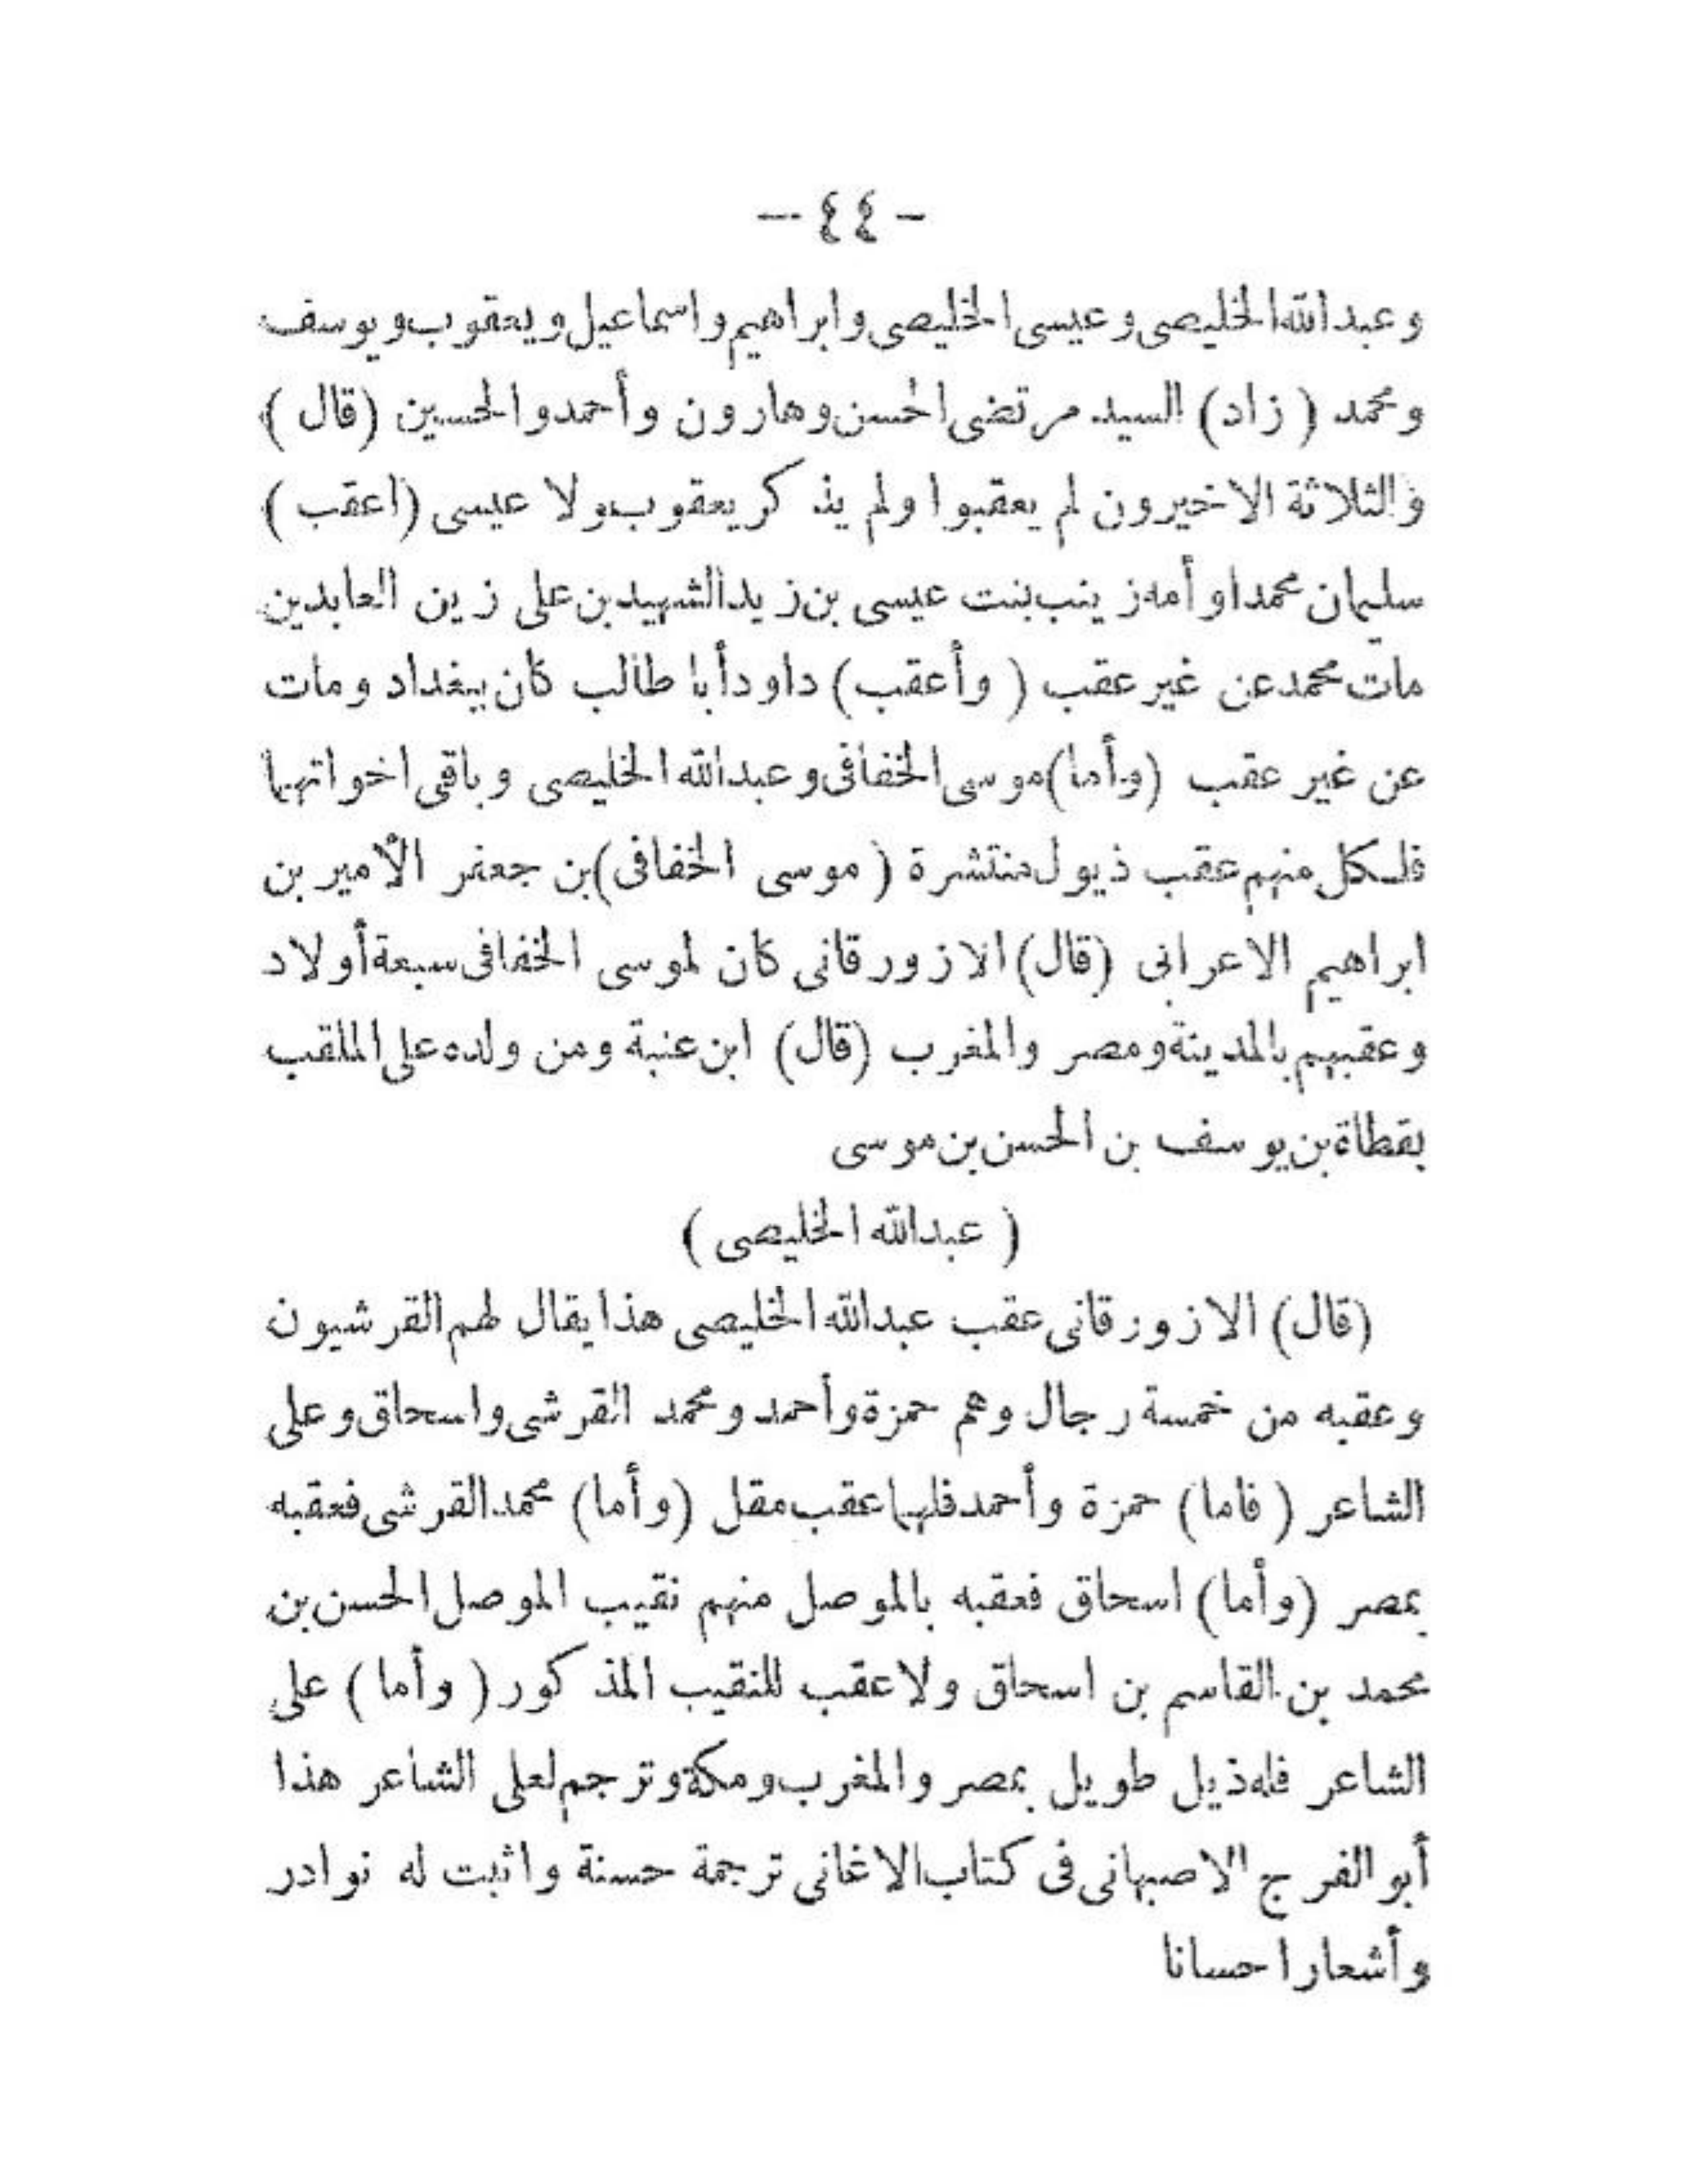 - ٤٤ -
وعبدالله الخليصى وعيسى الخليصى وابراهيم واسماعيل ويعقوب ويوسف
ومحمد ( زاد ) السيد مرتضى الحسن وهارون وأحمد والحسين (قال )
والثلاثة الاخيرون لم يعقبوا ولم يذكر يعقوب ولا عيسى (اعقب )
سليمان محمدا وأمه زينب بنت عيسى بن زيد الشهيد بن على زين العابدين
مات محمد عن غير عقب ( وأعقب ) داود أبا طالب كان ببغداد ومات
عن غير عقب (وأما) موسى الخفافى وعبدالله الخليصى وباقى اخواتهما
فلكل منهم عقب ذيول منتشرة ( موسى الخفافى ) بن جعفر الأمير بن
ابراهيم الاعرابى (قال) الازورقانى كان لموسى الخفافى سبعة أولاد
وعقبهم بالمدينة ومصر والمغرب (قال) ابن عنبة ومن ولده على الملقب
بقطاة بن يوسف بن الحسن بن موسى
( عبدالله الخليصى )
(قال) الازورقانى عقب عبدالله الخليصى هذا يقال لهم القرشيون
وعقبه من خمسة رجال وهم حمزة وأحمد ومحمد القرشى واسحاق وعلى
الشاعر ( فاما ) حمزة وأحمد فلهما عقب مقل (وأما) محمد القرشى فعقبه
بمصر (وأما) اسحاق فعقبه بالموصل منهم نقيب الموصل الحسن بن
محمد بن القاسم بن اسحاق ولا عقب للنقيب المذكور ( وأما ) على
الشاعر فله ذيل طويل بمصر والمغرب ومكة وترجم لعلى الشاعر هذا
أبو الفرج الاصبهانى فى كتاب الاغانى ترجمة حسنة واثبت له نوادر
وأشعارا حسانا